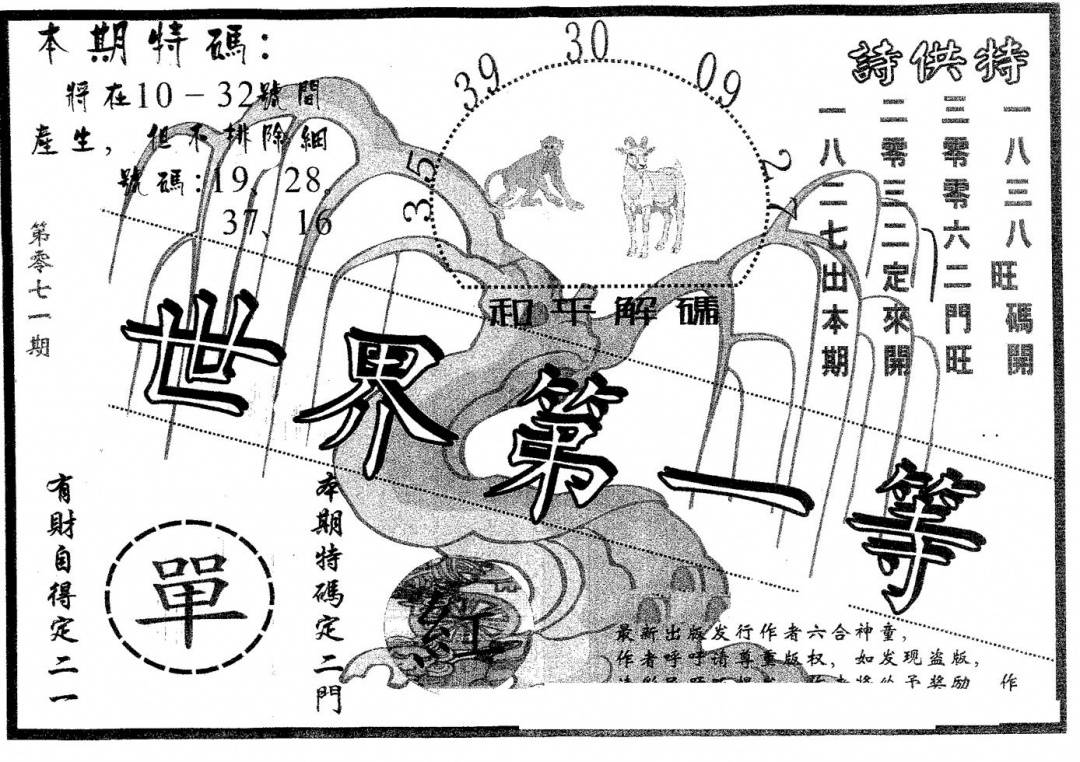 本期特碼:
將在10－32號間
產生，但不排除細
號碼:19、28。
37、16
第零七一期
3
5
39
30
09
2
7
和平解碼
特供詩
一八三八旺碼開
三零零六二門旺
二零三二定來開
一八二七出本期
世界第一等
有財自得定二一
單
本期特碼定二門
紅
最新出版发行作者六合神童，
作者呼吁请尊重版权，如发现盗版，
将给予奖励 作